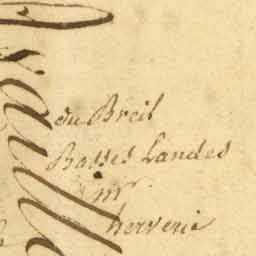 du Breil
Basses Landes
mr
herverie